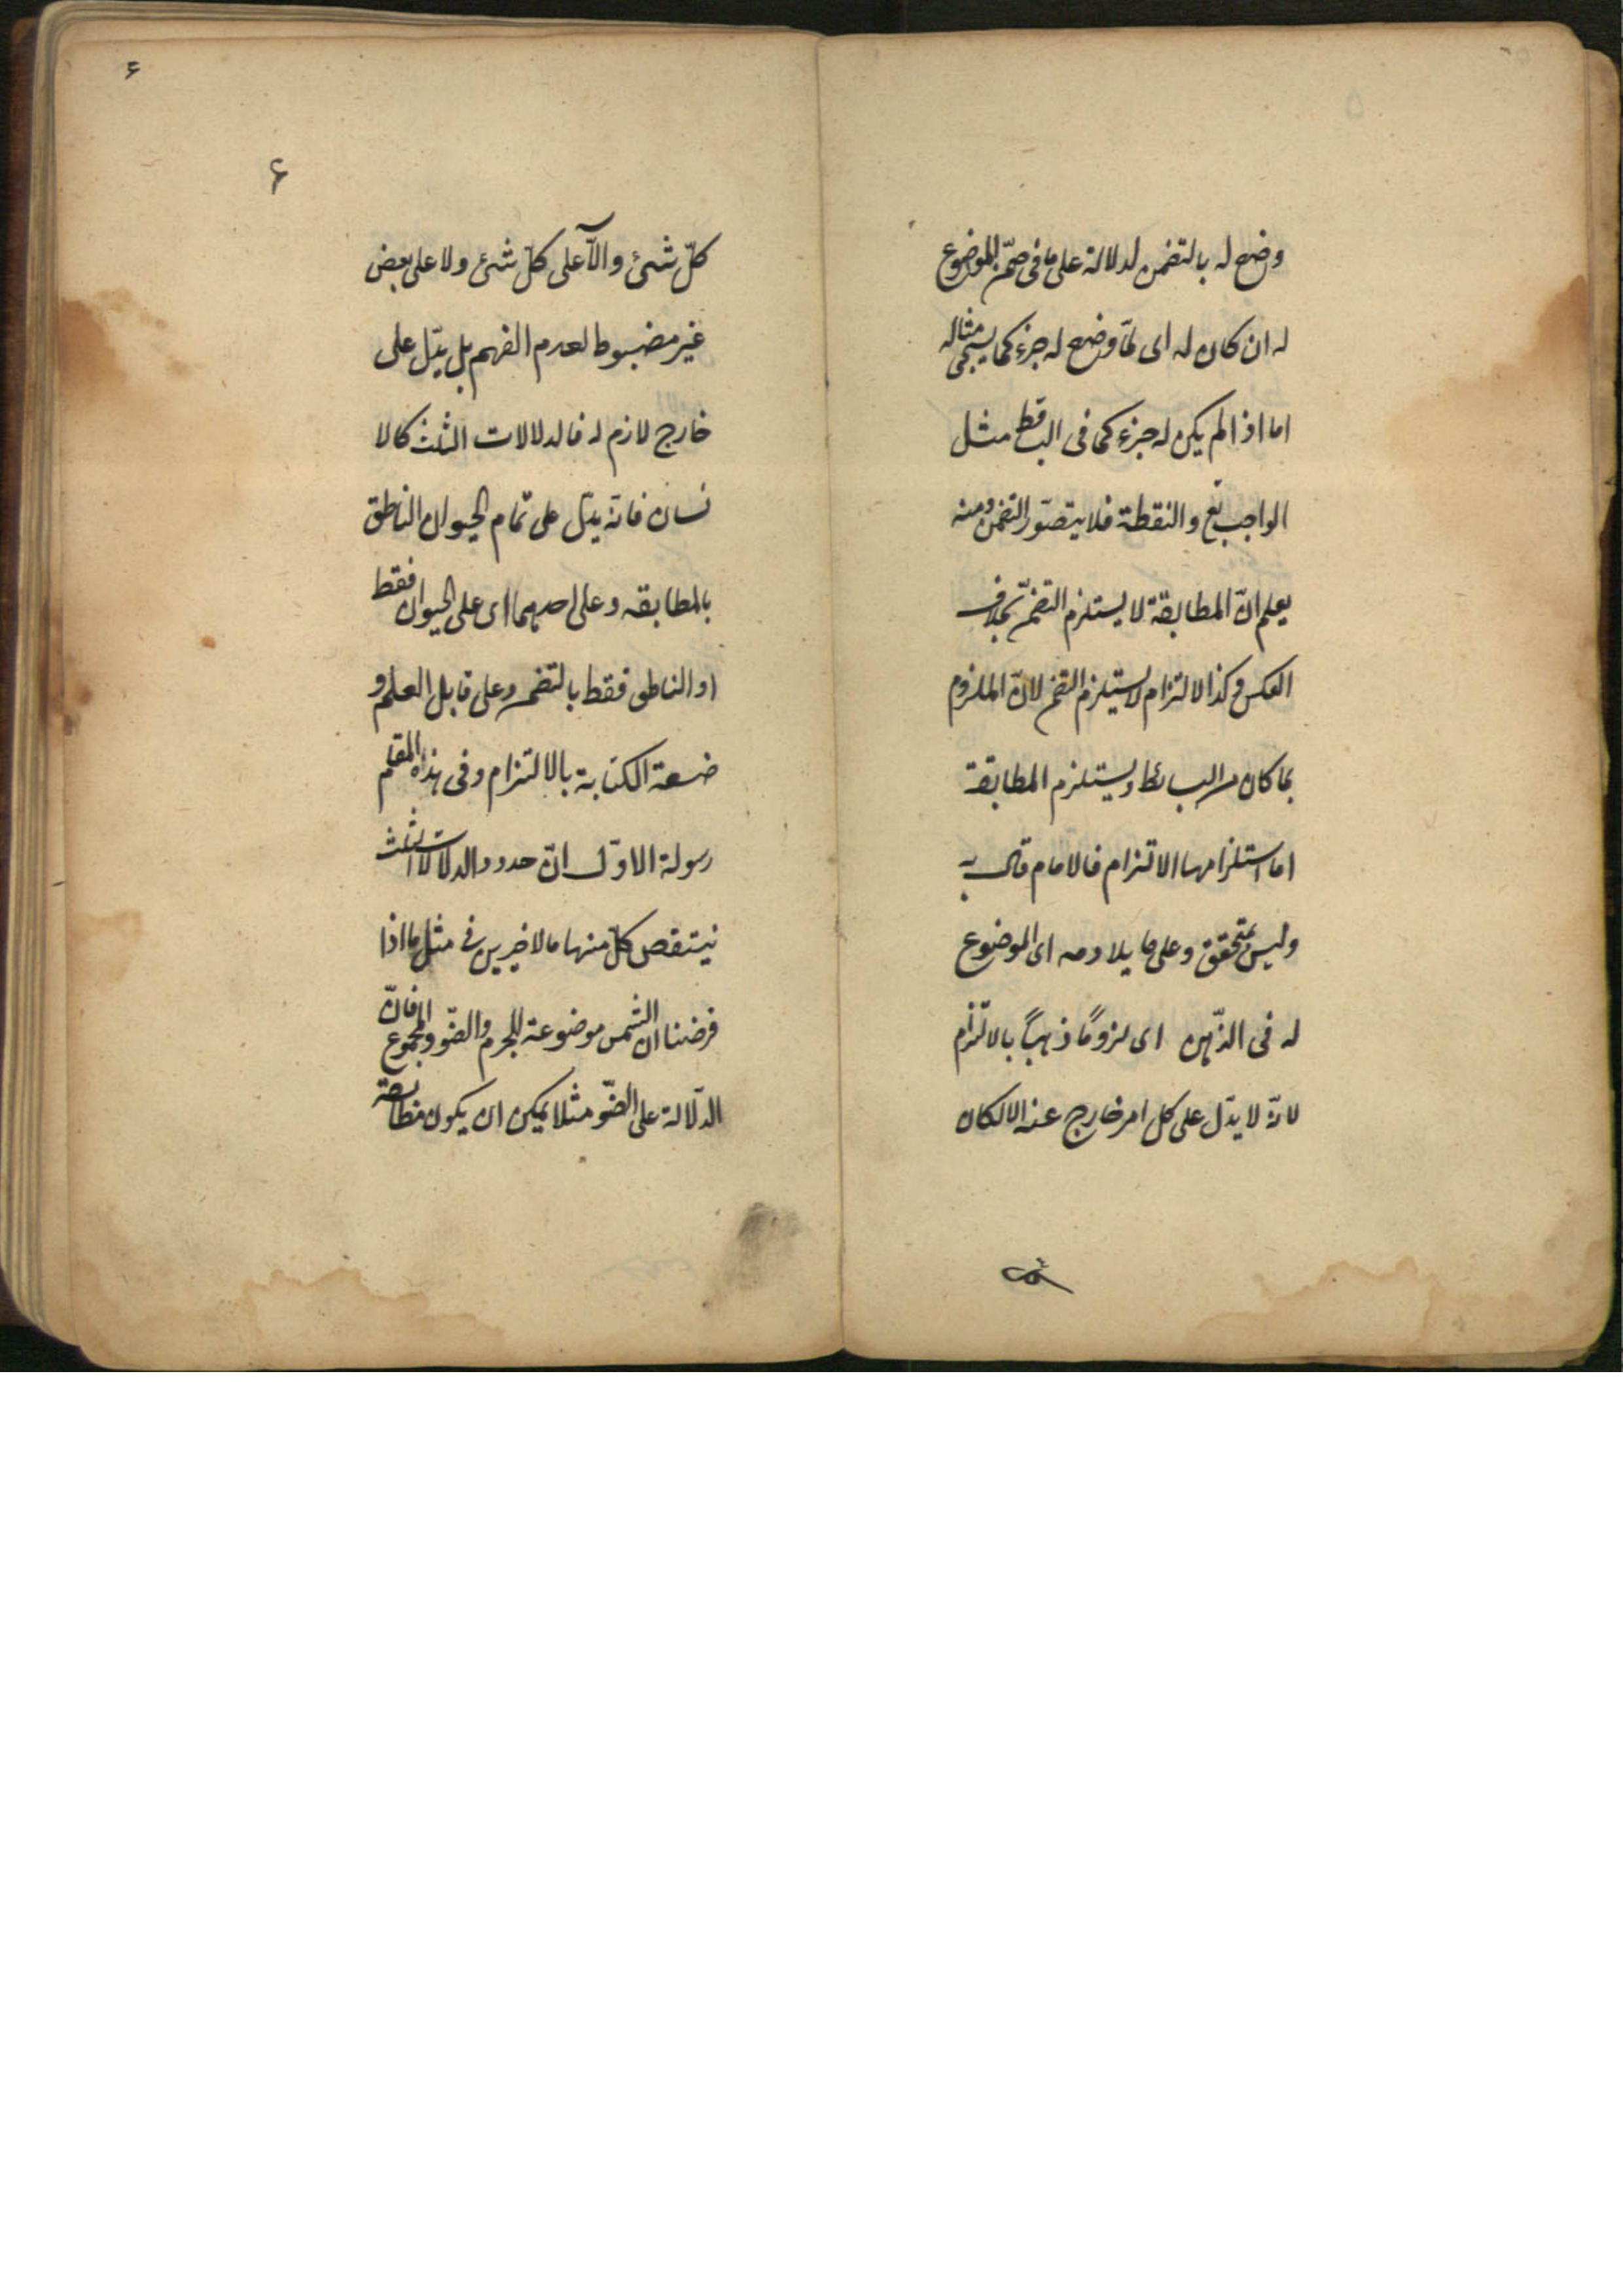 وضع له بالتضمن لدلالة على ما فى ضمن الموضوع
له ان كان له اى لما وضع له جزء كما سيجئ مثاله
اما اذا لم يكن له جزء كما فى البسائط مثل
الواجب تع والنقطة فلا يتصوّر التضمن ومنه
يعلم انّ المطابقة لا يستلزم التضمّن بخلاف
العكس وكذا الالتزام لا يستلزم التضمن لانّ الملزوم
بما كان من البسائط ويستلزم المطابقة
اما استلزامها الالتزام فالامام قال به
وليس بمتحقق وعلى ما يلازمه اى الموضوع
له فى الذّهن اى لزومًا ذهنيًا بالالتزام
لانّه لا يدّل على كل امر خارج عنه والا لكان
كلّ شئ دالّا على كلّ شئ ولا على بعض
غير مضبوط لعدم الفهم بل يدّل على
خارج لازم له فالدلالات الثلث كالا
نسان فانّه يدّل على تمام الحيوان الناطق
بالمطابقه وعلى احدهما اى على الحيوان فقط
او الناطق فقط بالتضمن وعلى قابل العلم و
ضعة الكتابة بالالتزام وفى هذا المقام
رسولة الاوّل انّ حدود الدلالات الثلث
ينتقص كلّ منها بالاخيرين فى مثل ما اذا
فرضنا ان الشمس موضوعة للجرم والضّو والمجموع فانّ
الدّلالة على الضّو مثلا يمكن ان يكون مطابقة
۶
۶